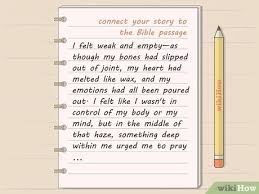 connect your story to
the Bible passage
I felt weak and empty—as
though my bones had slipped
out of joint, my heart had
melted like wax, and my
emotions had all been poured
out. I felt like I wasn't in
control of my body or my
mind, but in the middle of
that haze, something deep
within me urged me to pray
...
wikiHow
wikiHow